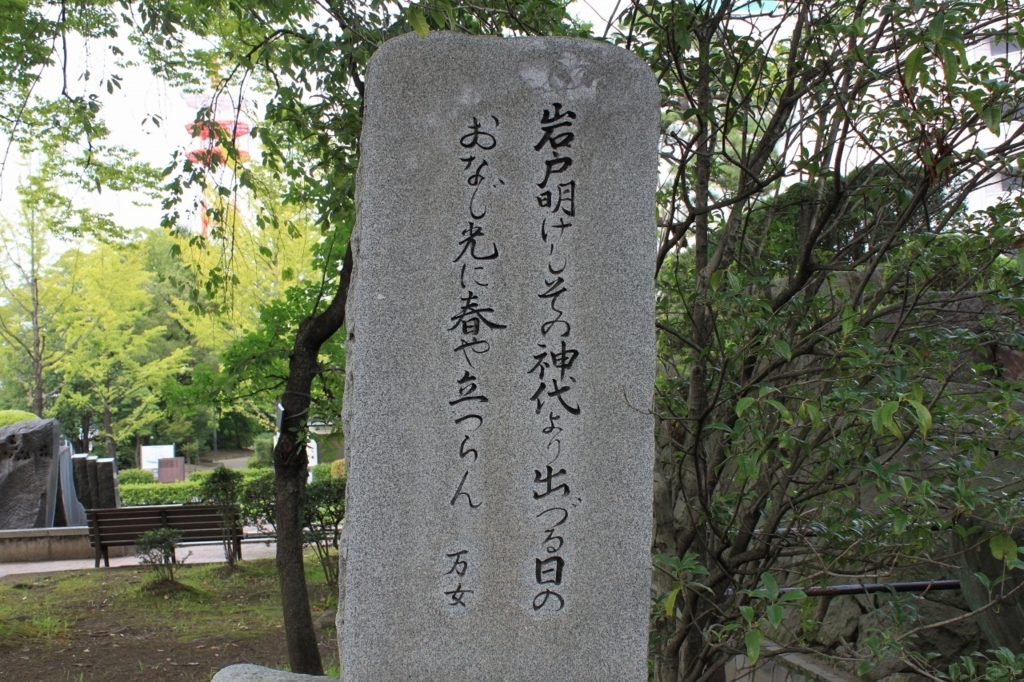 岩戸明けしその神代より出づる日の
おなじ光に春や立つらん
万女